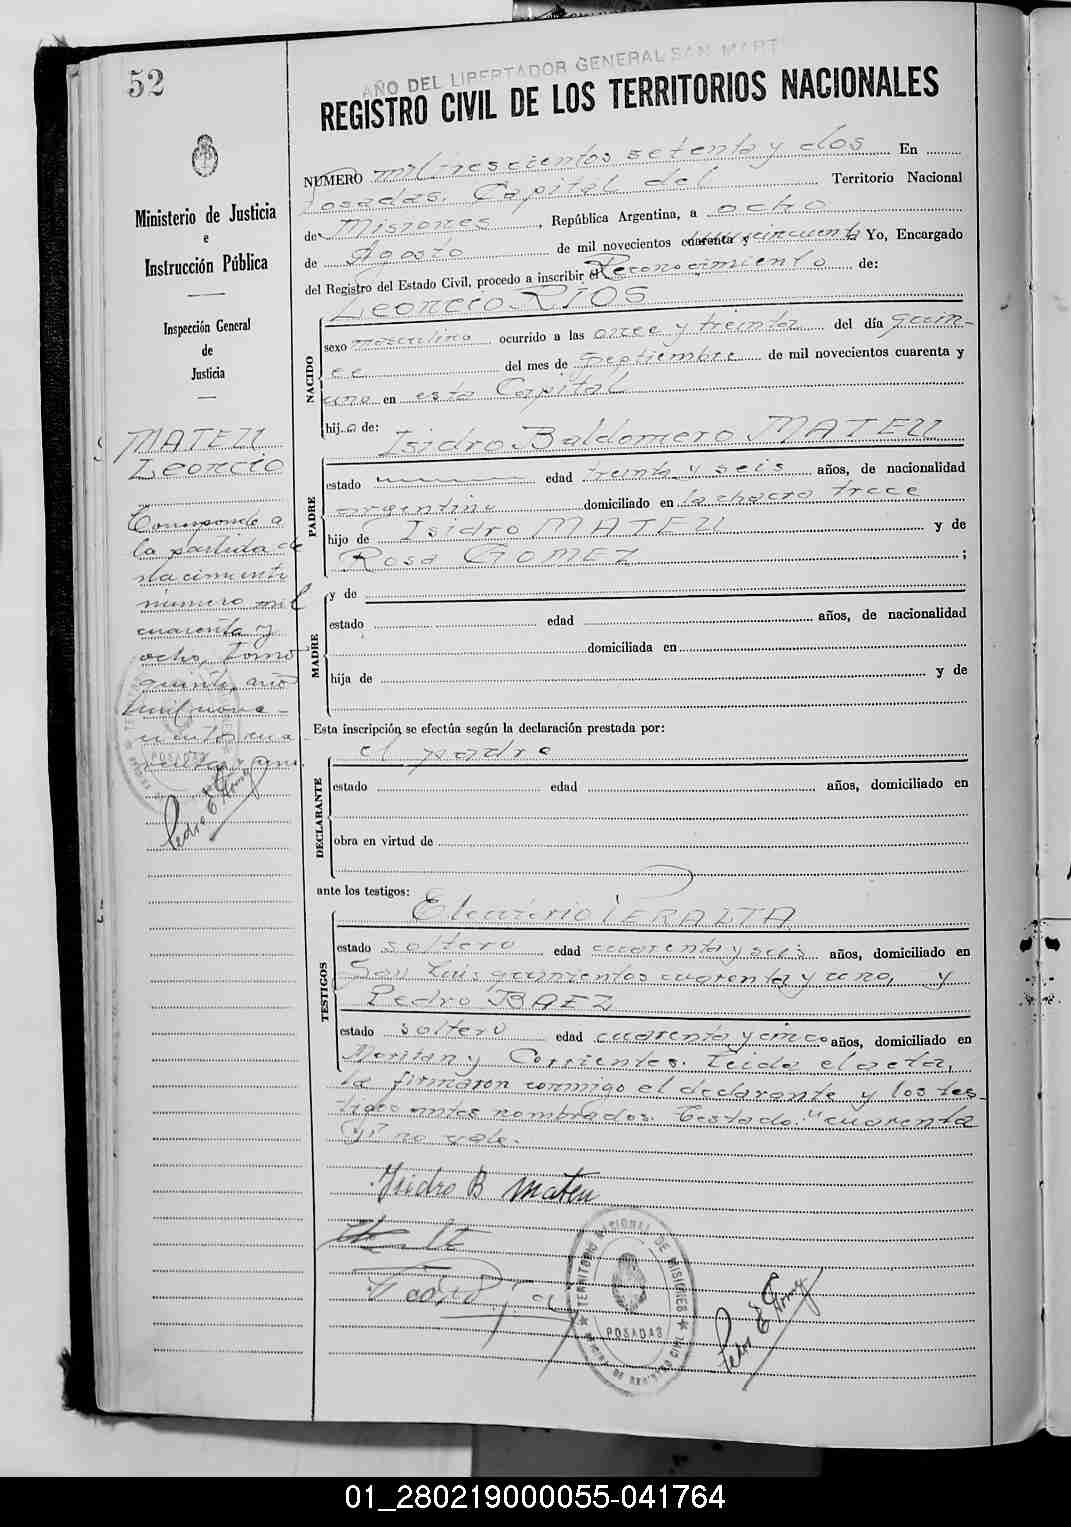 52
AÑO DEL LIBERTADOR GENERAL SAN MARTI
REGISTRO CIVIL DE LOS TERRITORIOS NACIONALES
Ministerio de Justicia
e
Instrucción Pública
Inspección General
de
Justicia
MATEU
Leoncio
Corresponde a
la partida de
nacimiento
número mil
cuarenta y
ocho, tomo
quinto, año
mil nove-
cientos cua
renta y uno.
Pedro E
NUMERO mil trescientos setenta y dos En
Posadas, Capital del Territorio Nacional
de Misiones, República Argentina, a ocho
de Agosto de mil novecientos cuarenta y cincuenta Yo, Encargado
del Registro del Estado Civil, procedo a inscribir el Reconocimiento de:
Leoncio RIOS
NACIDO
sexo masculino ocurrido a las once y treinta del día quin-
ce del mes de Septiembre de mil novecientos cuarenta y
uno en esta Capital
hijo de: Isidro Baldomero MATEU
PADRE
estado edad treinta y seis años, de nacionalidad
argentino domiciliado en la chacra trece
hijo de Isidro MATEU y de
Rosa GOMEZ ;
MADRE
y de
estado edad años, de nacionalidad
domiciliada en
hija de y de
Esta inscripción se efectúa según la declaración prestada por:
el padre
DECLARANTE
estado edad años, domiciliado en
obra en virtud de
ante los testigos:
Eleuterio PERALTA
TESTIGOS
estado soltero edad cuarenta y seis años, domiciliado en
San Luis quinientos cuarenta y uno, y
Pedro BAEZ
estado soltero edad cuarenta y cinco años, domiciliado en
y Corrientes. Leida el acta,
la firmaron conmigo el declarante y los tes-
tigos antes nombrados. Testado: "cuarenta
y" no vale.
Isidro B Mateu
TERRITORIO NACIONAL DE MISIONES
POSADAS
OFICINA DE REGISTRO CIVIL
Pedro E
01_280219000055-041764